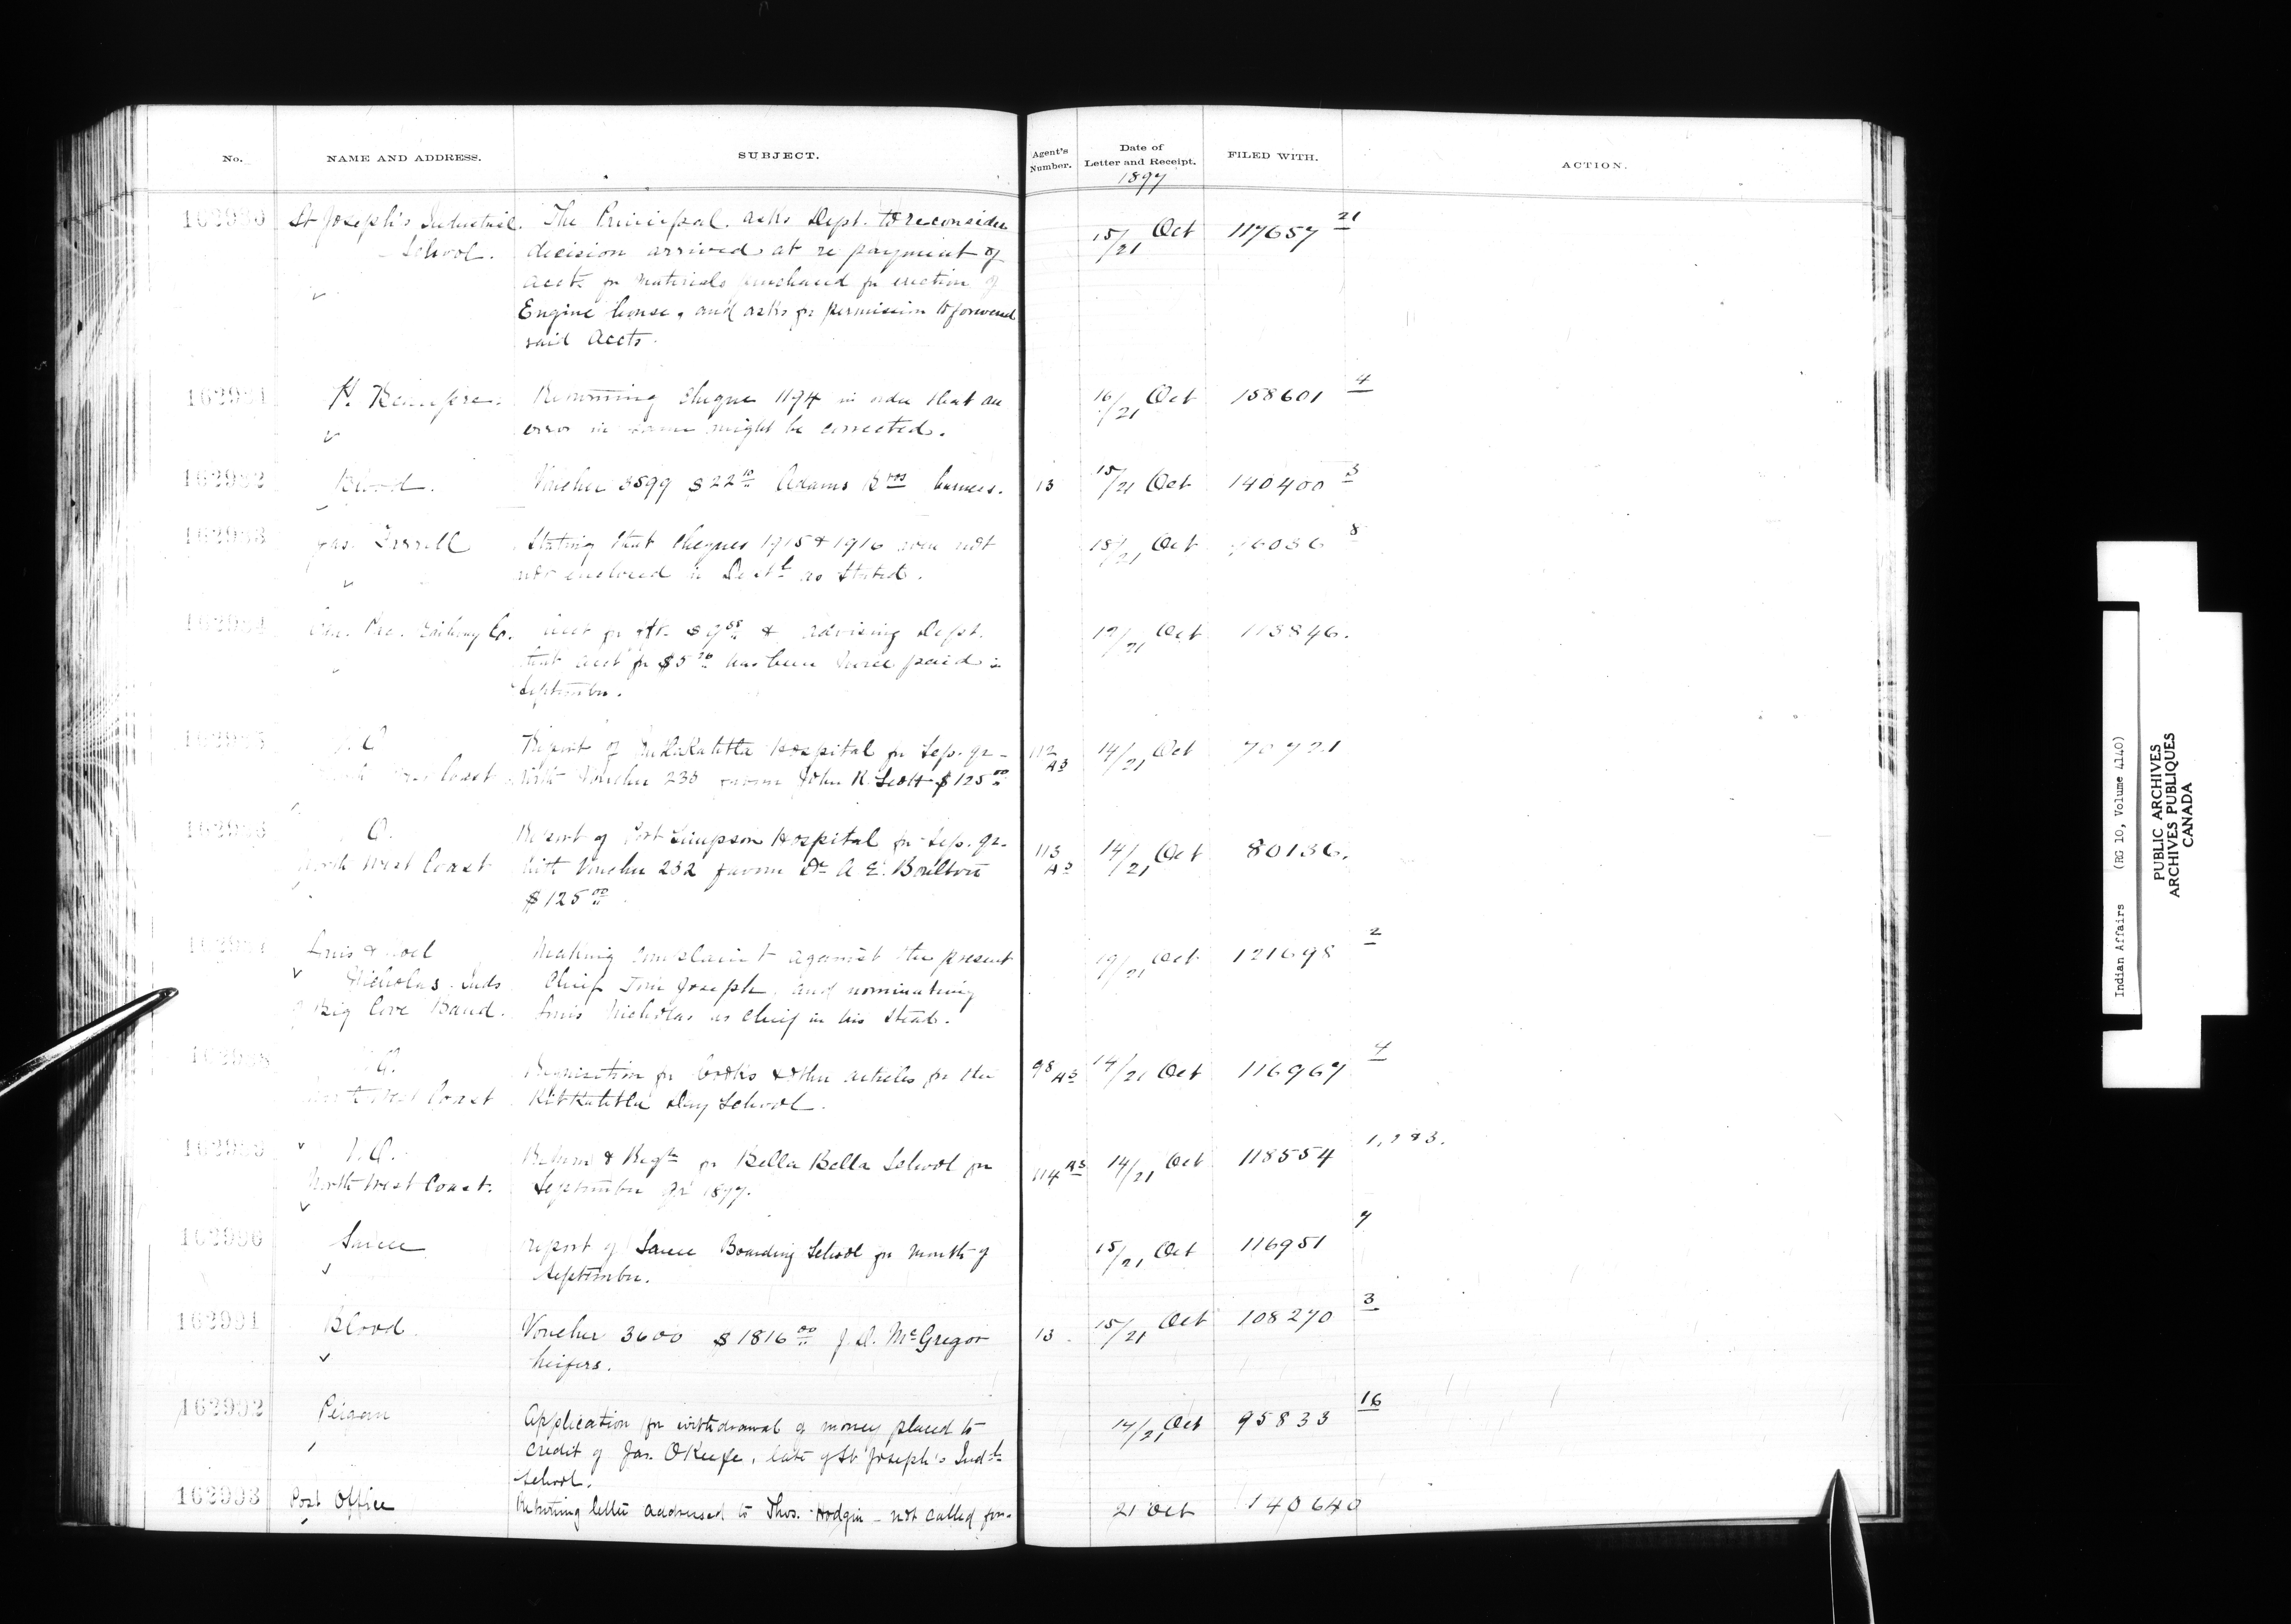 No. NAME AND ADDRESS. SUBJECT. Agent's Number. Date of Letter and Receipt. FILED WITH. ACTION.
1897
162980 St Joseph's Industrial School. The Principal asks Dept. to reconsider 15/21 Oct 117657 21
decision arrived at re payment of
acct. for materials purchased for erection of
Engine house, and asks for permission to forward
said accts.
162981 H. Returning cheque 1194 in order that an 16/21 Oct 158601 4
error in same might be corrected.
162982 Blood. Voucher 3599 $22 10 Adams Bros harness. 13 15/21 Oct 140400 3
162983 Jas. Farrell Stating that cheques 1915 & 1916 were not 18/21 Oct 8
not enclosed in as stated.
162984 Can. Pac. Railway Co. acct for $9 & advising Dept. 19/21 Oct 113846.
that acct for $5 has been twice paid in
September.
162985 I. A. Report of Hospital for Sep. qr - 112 A3 14/21 Oct 70721
North West Coast with Voucher 230 favour John R. Scott $125 00
162986 I. A. Report of Port Simpson Hospital for Sep. qr. 113 A3 14/21 Oct 80136.
North West Coast with Voucher 232 favour Dr A. E. Boulton
$125 00
162987 Louis & Noel Making complaint against the present 19/21 Oct 121698 2
Nicholas Inds Chief Tom Joseph and nominating
of Big Cove Band. Louis Nicholas as chief in his stead.
162988 I. A. Requisition for books & other articles for the 98 A3 14/21 Oct 116967 4
North West Coast Kitkahtla Day School.
162989 I. A. Return & Reqtn for Bella Bella School for 114 A3 14/21 Oct 118554 1,283.
North West Coast. September qr 1897.
162990 Sarcee Report of Sarcee Boarding School for month of 15/21 Oct 116951 7
September.
162991 Blood. Voucher 3600 $1816 00 J. D. McGregor 13. 15/21 Oct 108270 3
heifers.
162992 Peigan Application for withdrawal of money placed to 14/21 Oct 95833 16
credit of Jas. O'Keefe, late of St Joseph's Indl
School.
162993 Post Office Returning letter addressed to Thos. Hodgin - not called for. 21 Oct 140640
Indian Affairs (RG 10, Volume 4140)
PUBLIC ARCHIVES
ARCHIVES PUBLIQUES
CANADA